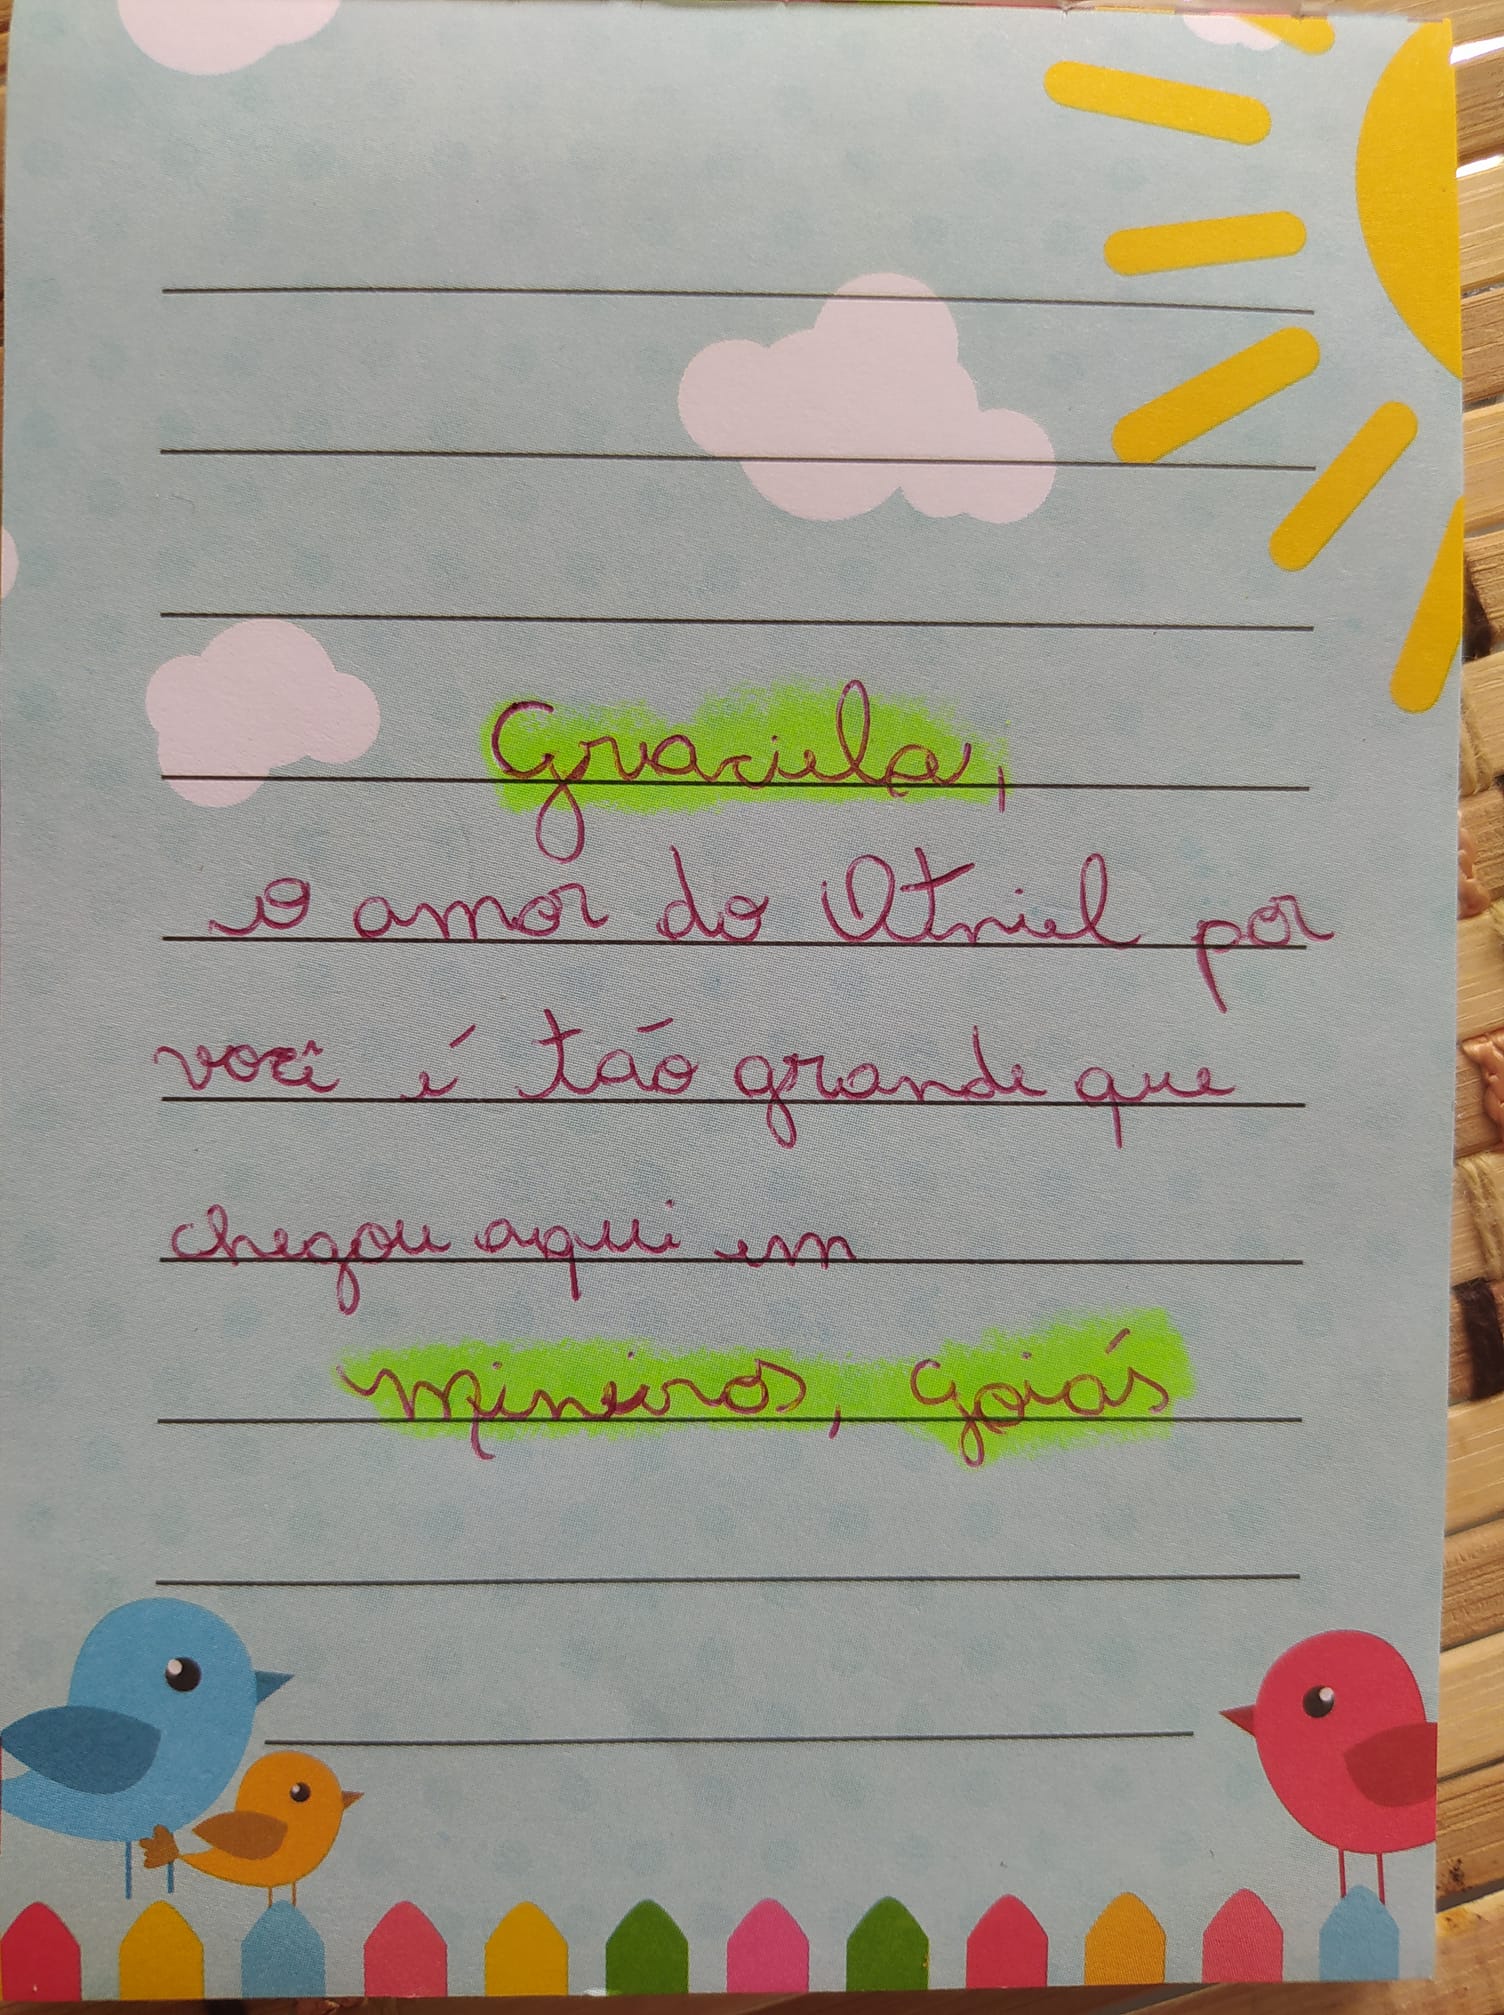 Graciela,
o amor do Otniel por
você é tão grande que
chegou aqui em
Mineiros, Goiás